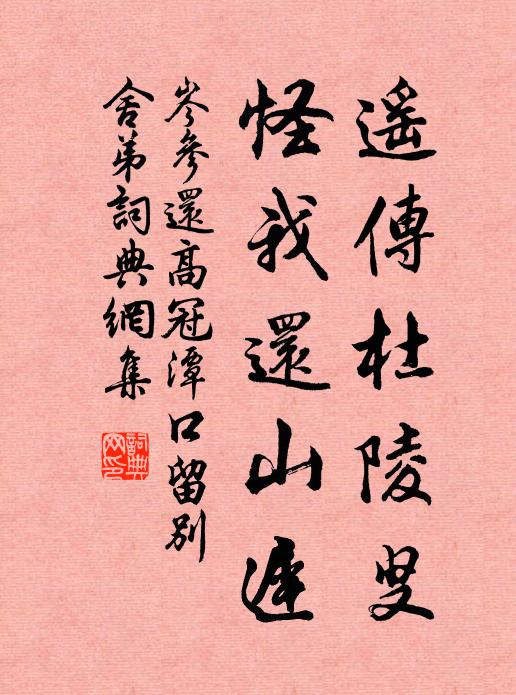 遥傳杜陵叟
怪我還山遲
岑參還高冠潭口留别
舍弟詞典網集
詞典网印